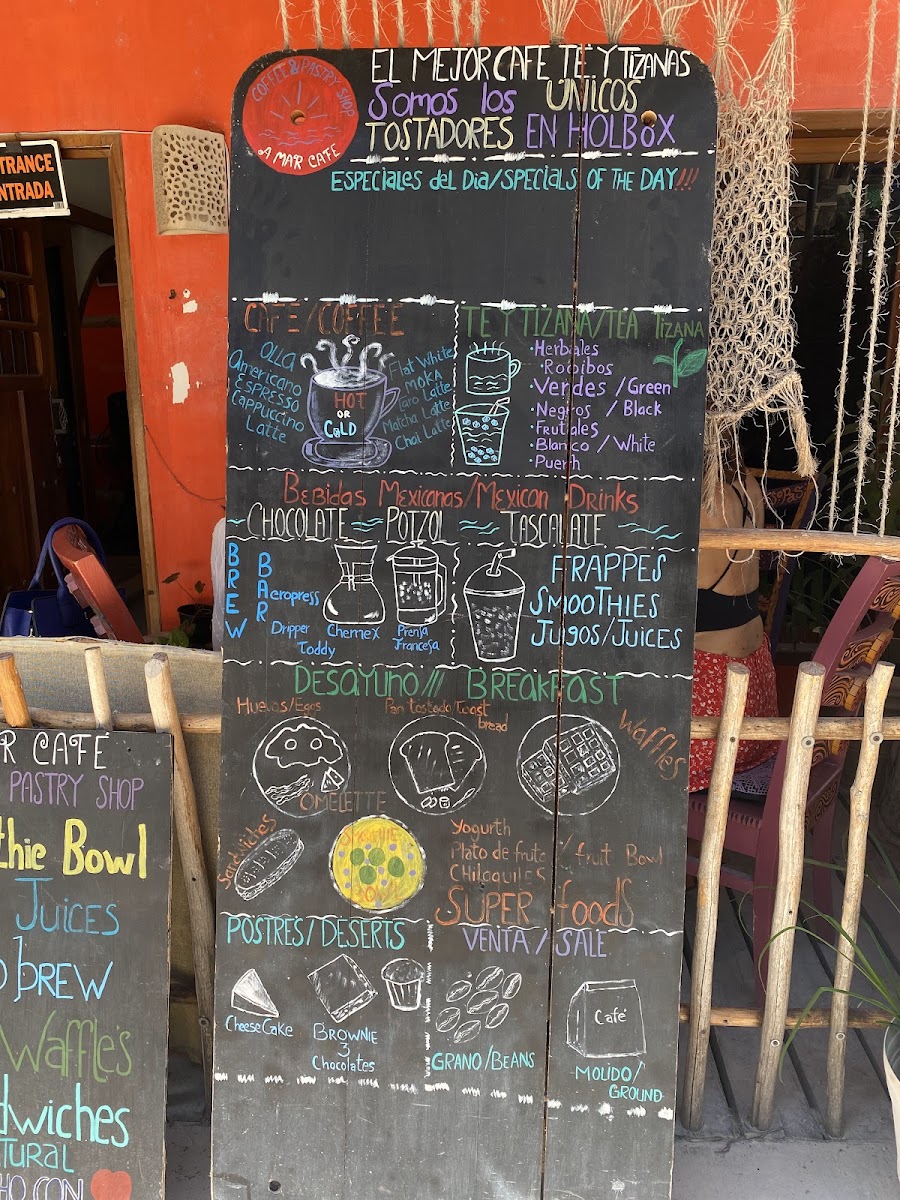 NTRANCE
ENTRADA
COFFEE & PASTRY SHOP
A MAR CAFE
EL MEJOR CAFE TE Y TIZANAS
Somos los ÚNICOS
TOSTADORES EN HOLBOX
ESPECIALES del DIA/SPECIALS OF THE DAY!!!
CAFE/COFFEE
OLLA
Americano
ESPRESSO
Cappuccino
Latte
HOT
OR
COLD
Flat White
MOKA
Taro Latte
Matcha Latte
Chai Latte
TE Y TIZANA/TEA Tizana
·Herbales
·Rooibos
·Verdes / Green
·Negros / Black
·Frutales
·Blanco / White
·Puerh
Bebidas Mexicanas/Mexican Drinks
~CHOCOLATE ≈ POTZOL ≈ TASCALATE ~
BREW
BAR
Aeropress
Dripper
Toddy
Chemex
Prensa
Francesa
FRAPPES
SMOOTHIES
Jugos/Juices
DESAYUNO/// BREAKFAST
Huevos/Eggs
Pan tostado/Toast
bread
Waffles
OMELETTE
Sandwiches
SMOOTHIE
BOWL
Yogurth
Plato de fruta / fruit Bowl
Chilaquiles
SUPER foods
POSTRES/DESERTS
CheeseCake
BROWNIE
3
Chocolates
VENTA / SALE
GRANO/BEANS
Café
MOLIDO/
GROUND
R CAFE
PASTRY SHOP
thie Bowl
JUICES
BREW
Waffles
dwiches
TURAL
HO CON